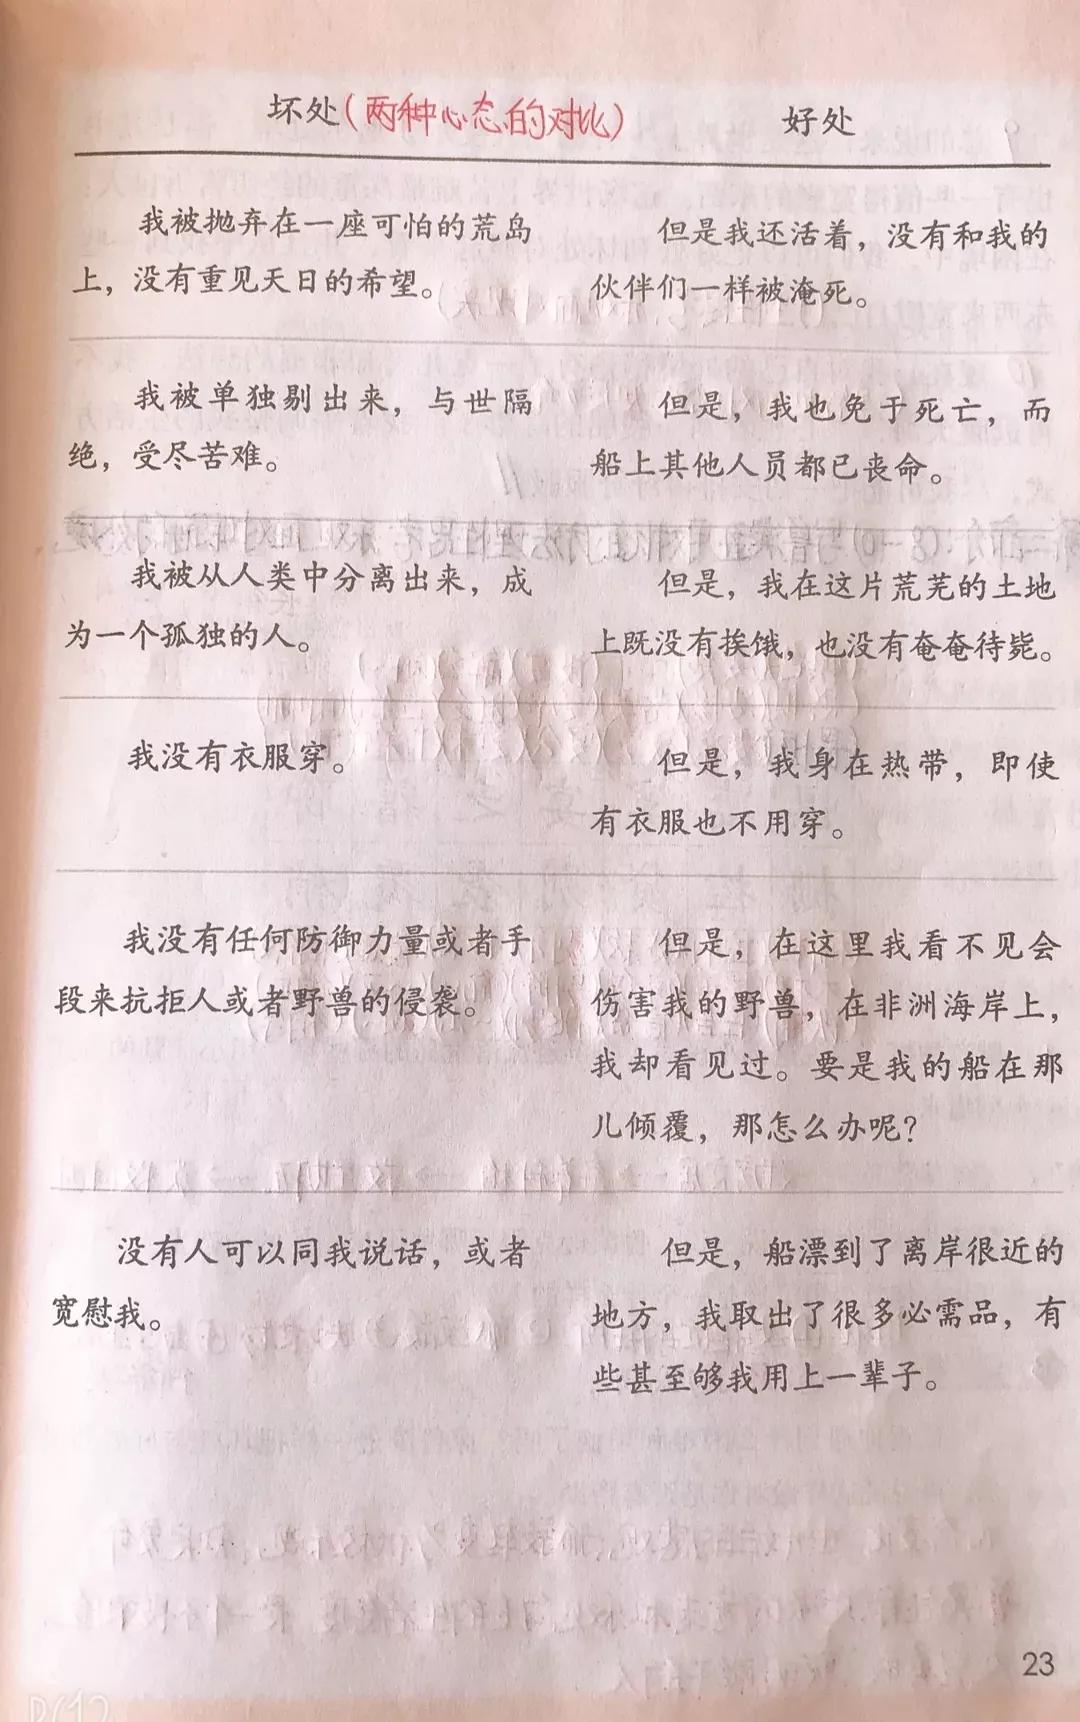 坏处(两种心态的对比) 好处
我被抛弃在一座可怕的荒岛
上，没有重见天日的希望。
但是我还活着，没有和我的
伙伴们一样被淹死。
我被单独剔出来，与世隔
绝，受尽苦难。
但是，我也免于死亡，而
船上其他人员都已丧命。
我被从人类中分离出来，成
为一个孤独的人。
但是，我在这片荒芜的土地
上既没有挨饿，也没有奄奄待毙。
我没有衣服穿。
但是，我身在热带，即使
有衣服也不用穿。
我没有任何防御力量或者手
段来抗拒人或者野兽的侵袭。
但是，在这里我看不见会
伤害我的野兽，在非洲海岸上，
我却看见过。要是我的船在那
儿倾覆，那怎么办呢？
没有人可以同我说话，或者
宽慰我。
但是，船漂到了离岸很近的
地方，我取出了很多必需品，有
些甚至够我用上一辈子。
23